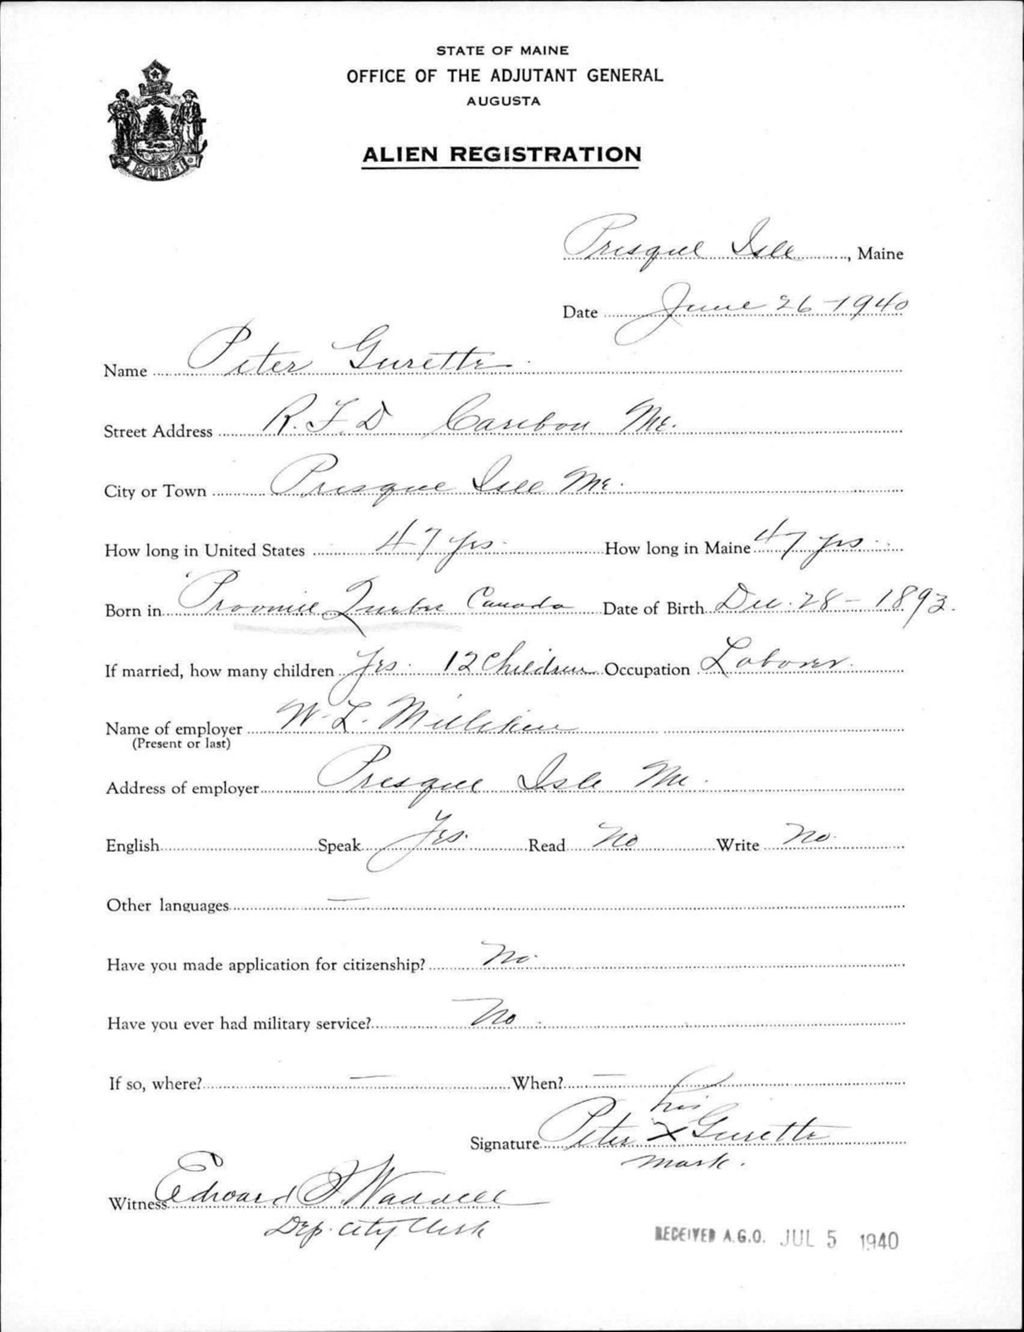 STATE OF MAINE
OFFICE OF THE ADJUTANT GENERAL
AUGUSTA
ALIEN REGISTRATION
MAINE
Presque Isle, Maine
Date June 26-1940
Name Peter Gurette
Street Address R.F.D Caribou Me.
City or Town Presque Isle Me.
How long in United States 47 yrs. How long in Maine 47 yrs.
Born in Province Quebec Canada Date of Birth Dec. 28 - 1893.
If married, how many children Yes. 12 Children Occupation Laborer.
Name of employer W. L. Milliken
(Present or last)
Address of employer Presque Isle Me.
English Speak Yes. Read No Write No.
Other languages —
Have you made application for citizenship? No.
Have you ever had military service? No.
If so, where? — When? —
his
Signature Peter X Gurette
mark.
Witness Edward F. Waddell
Dep. City Clerk
RECEIVED A.G.O. JUL 5 1940